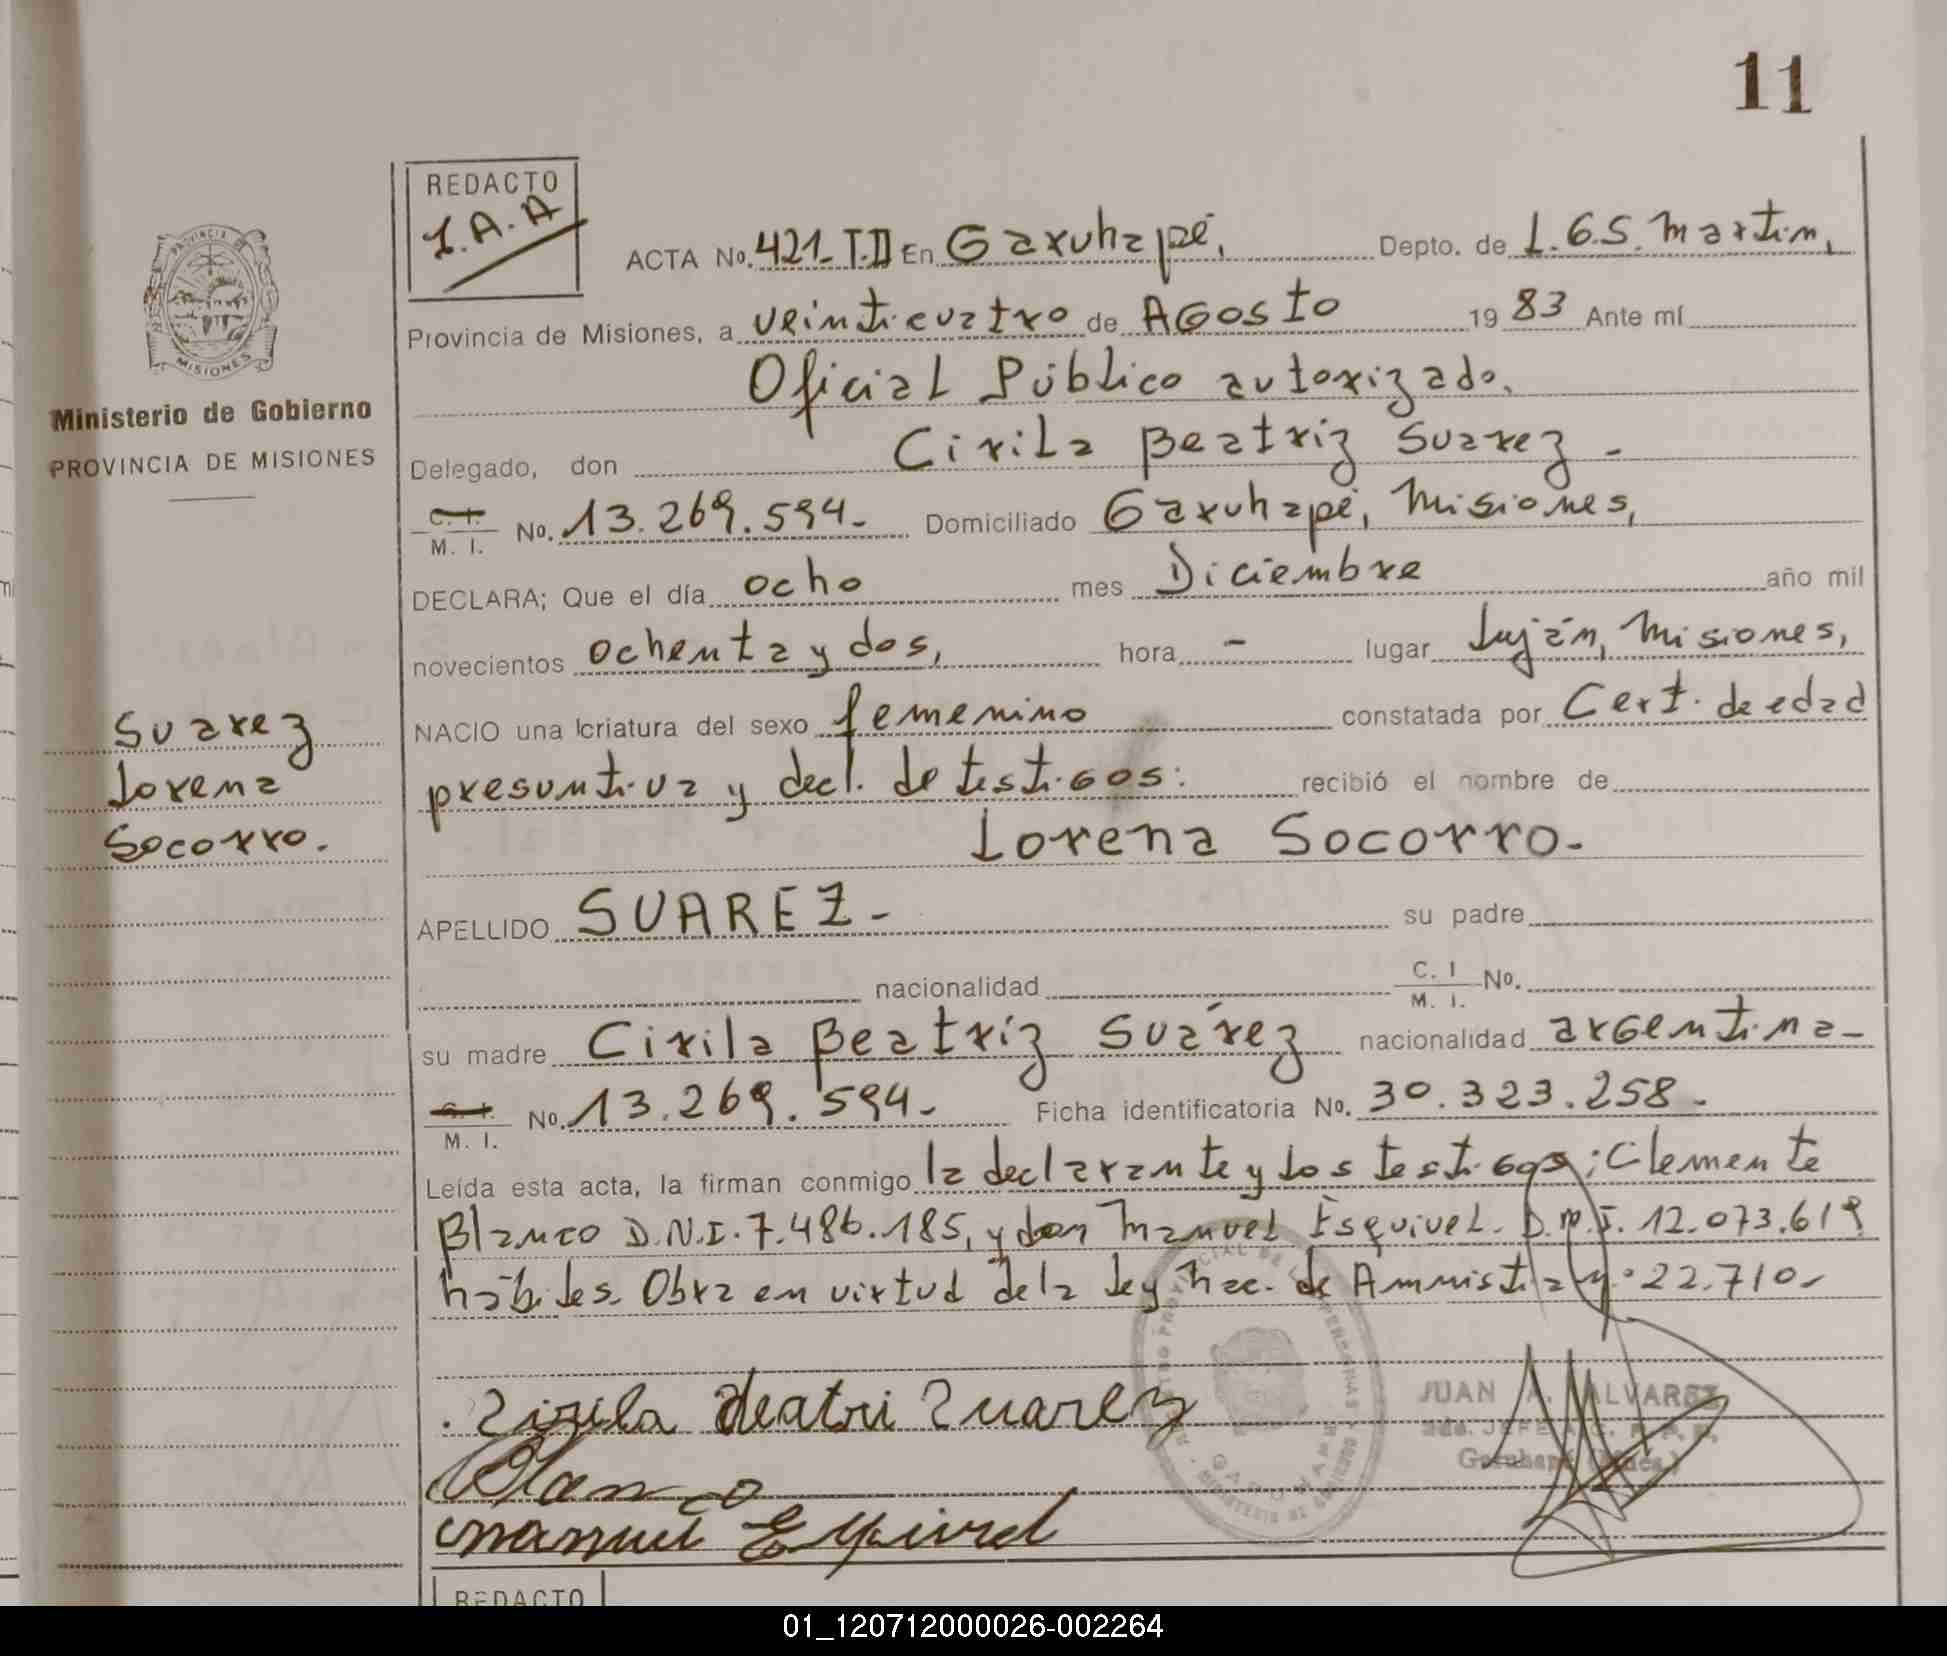 11
REDACTO
J.A.A
ACTA No. 421-T.D En Garuhapé, Depto. de L.G.S. Martin,
Provincia de Misiones, a veinticuatro de AGosto 1983 Ante mí
Oficial Público autorizado.
Ministerio de Gobierno
PROVINCIA DE MISIONES
Delegado, don Cirila Beatriz Suarez -
C. I.
M. I. No. 13.269.594.- Domiciliado Garuhapé, Misiones,
DECLARA; Que el día ocho mes Diciembre año mil
novecientos ochenta y dos, hora - lugar Luján, Misiones,
NACIO una criatura del sexo femenino constatada por Cert. de edad
Suarez
Lorena
Socorro.
presuntiva y decl. de testigos: recibió el nombre de
Lorena Socorro.-
APELLIDO SUAREZ - su padre
nacionalidad C. I
M. I. No.
su madre Cirila Beatriz Suárez nacionalidad argentina-
C. I.
M. I. No. 13.269.594.- Ficha identificatoria No. 30.323.258.-
Leída esta acta, la firman conmigo la declarante y los testigos; Clemente
Blanco D.N.I. 7.486.185, y don Manuel Esquivel. D.N.I. 12.073.619
hábiles. Obra en virtud de la Ley Nac. de Amnistia nº 22.710-
Zirila Beatri Zuarez
Blanco
manuel Esquivel
JUAN A. ALVAREZ
Garuhapé
REDACTO
01_120712000026-002264